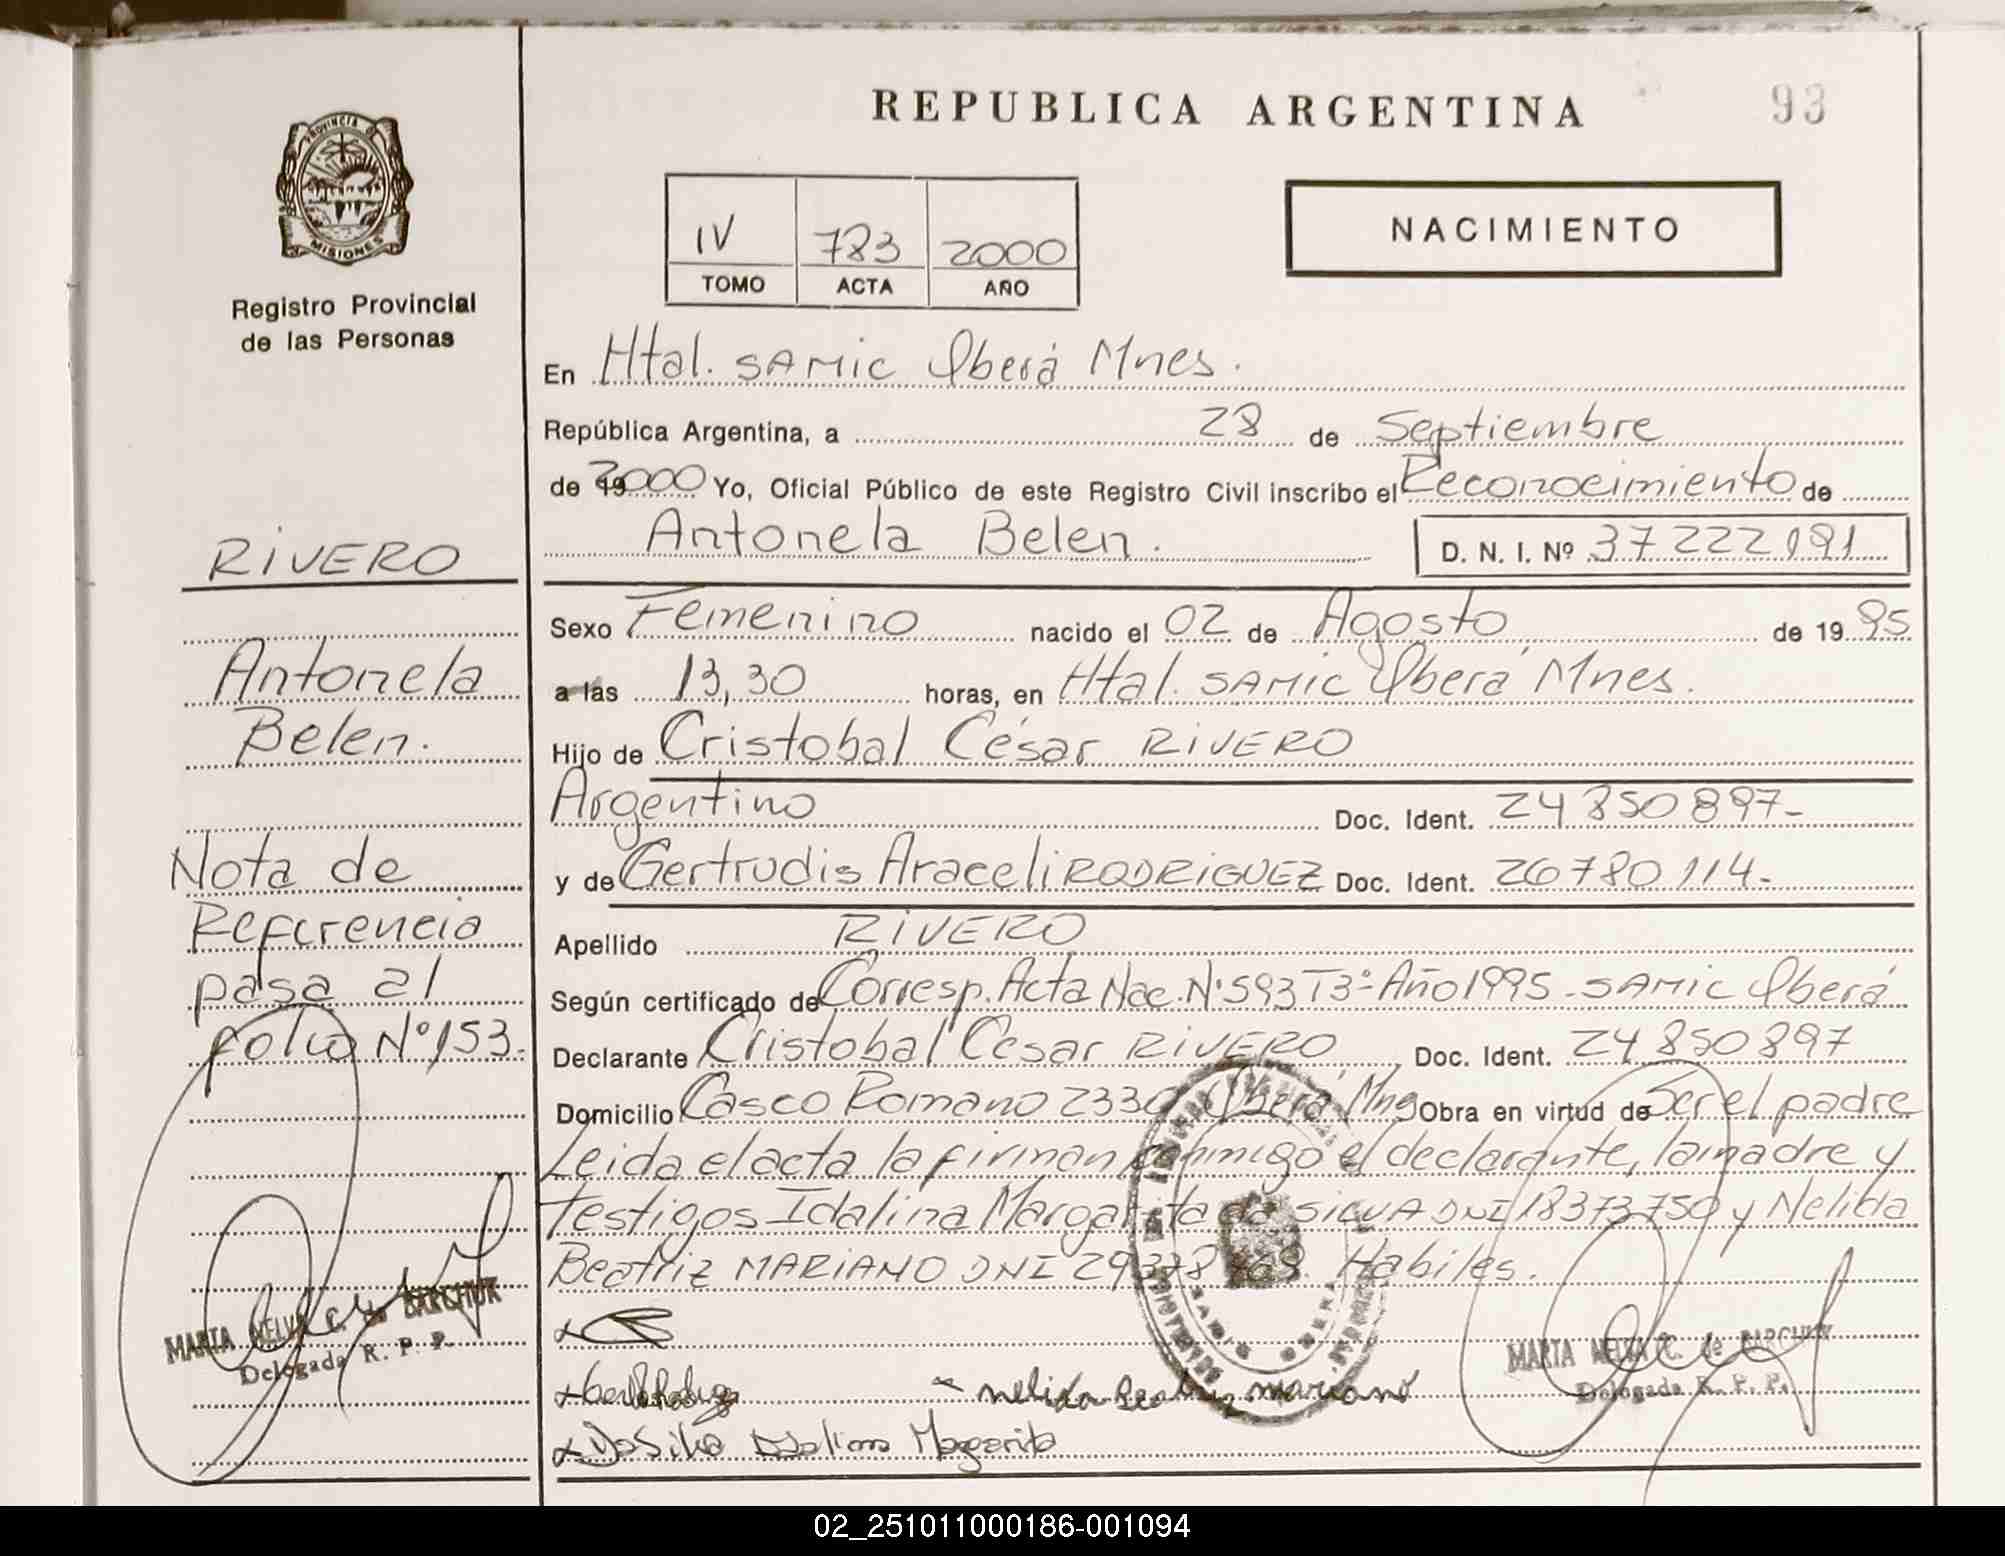 REPUBLICA ARGENTINA
93
PROVINCIA DE
MISIONES
Registro Provincial
de las Personas
IV 783 2000
TOMO ACTA AÑO
NACIMIENTO
En Htal. SAMIC Oberá Mnes.
República Argentina, a 28 de Septiembre
de 2000 Yo, Oficial Público de este Registro Civil inscribo el Reconocimiento de
Antonela Belen. D. N. I. Nº 37222191
Sexo Femenino nacido el 02 de Agosto de 1995
a las 13,30 horas, en Htal. SAMIC Oberá Mnes.
Hijo de Cristobal César RIVERO
Argentino Doc. Ident. 24850897-
y de Gertrudis Araceli RODRIGUEZ Doc. Ident. 26780114-
Apellido RIVERO
Según certificado de Corresp. Acta Nac. Nº593 T3º Año 1995 - SAMIC Oberá
Declarante Cristobal César RIVERO Doc. Ident. 24850897
Domicilio Casco Romano 2330 Oberá, Mns Obra en virtud de Ser el padre
Leida el acta la firman conmigo el declarante, la madre y
testigos Idalina Margarita da SILVA DNI 18373750 y Nelida
Beatriz MARIANO DNI 29378 Habiles.
Nelida Beatriz Mariano
Da Silva Idalina Margarita
MARIA NELVA C. de BARCHUK
Delegada R. P. P.
RIVERO
Antonela
Belen.
Nota de
Referencia
pasa al
folio Nº 153.
MARIA NELVA C. de BARCHUK
Delegada R. P. P.
02_251011000186-001094